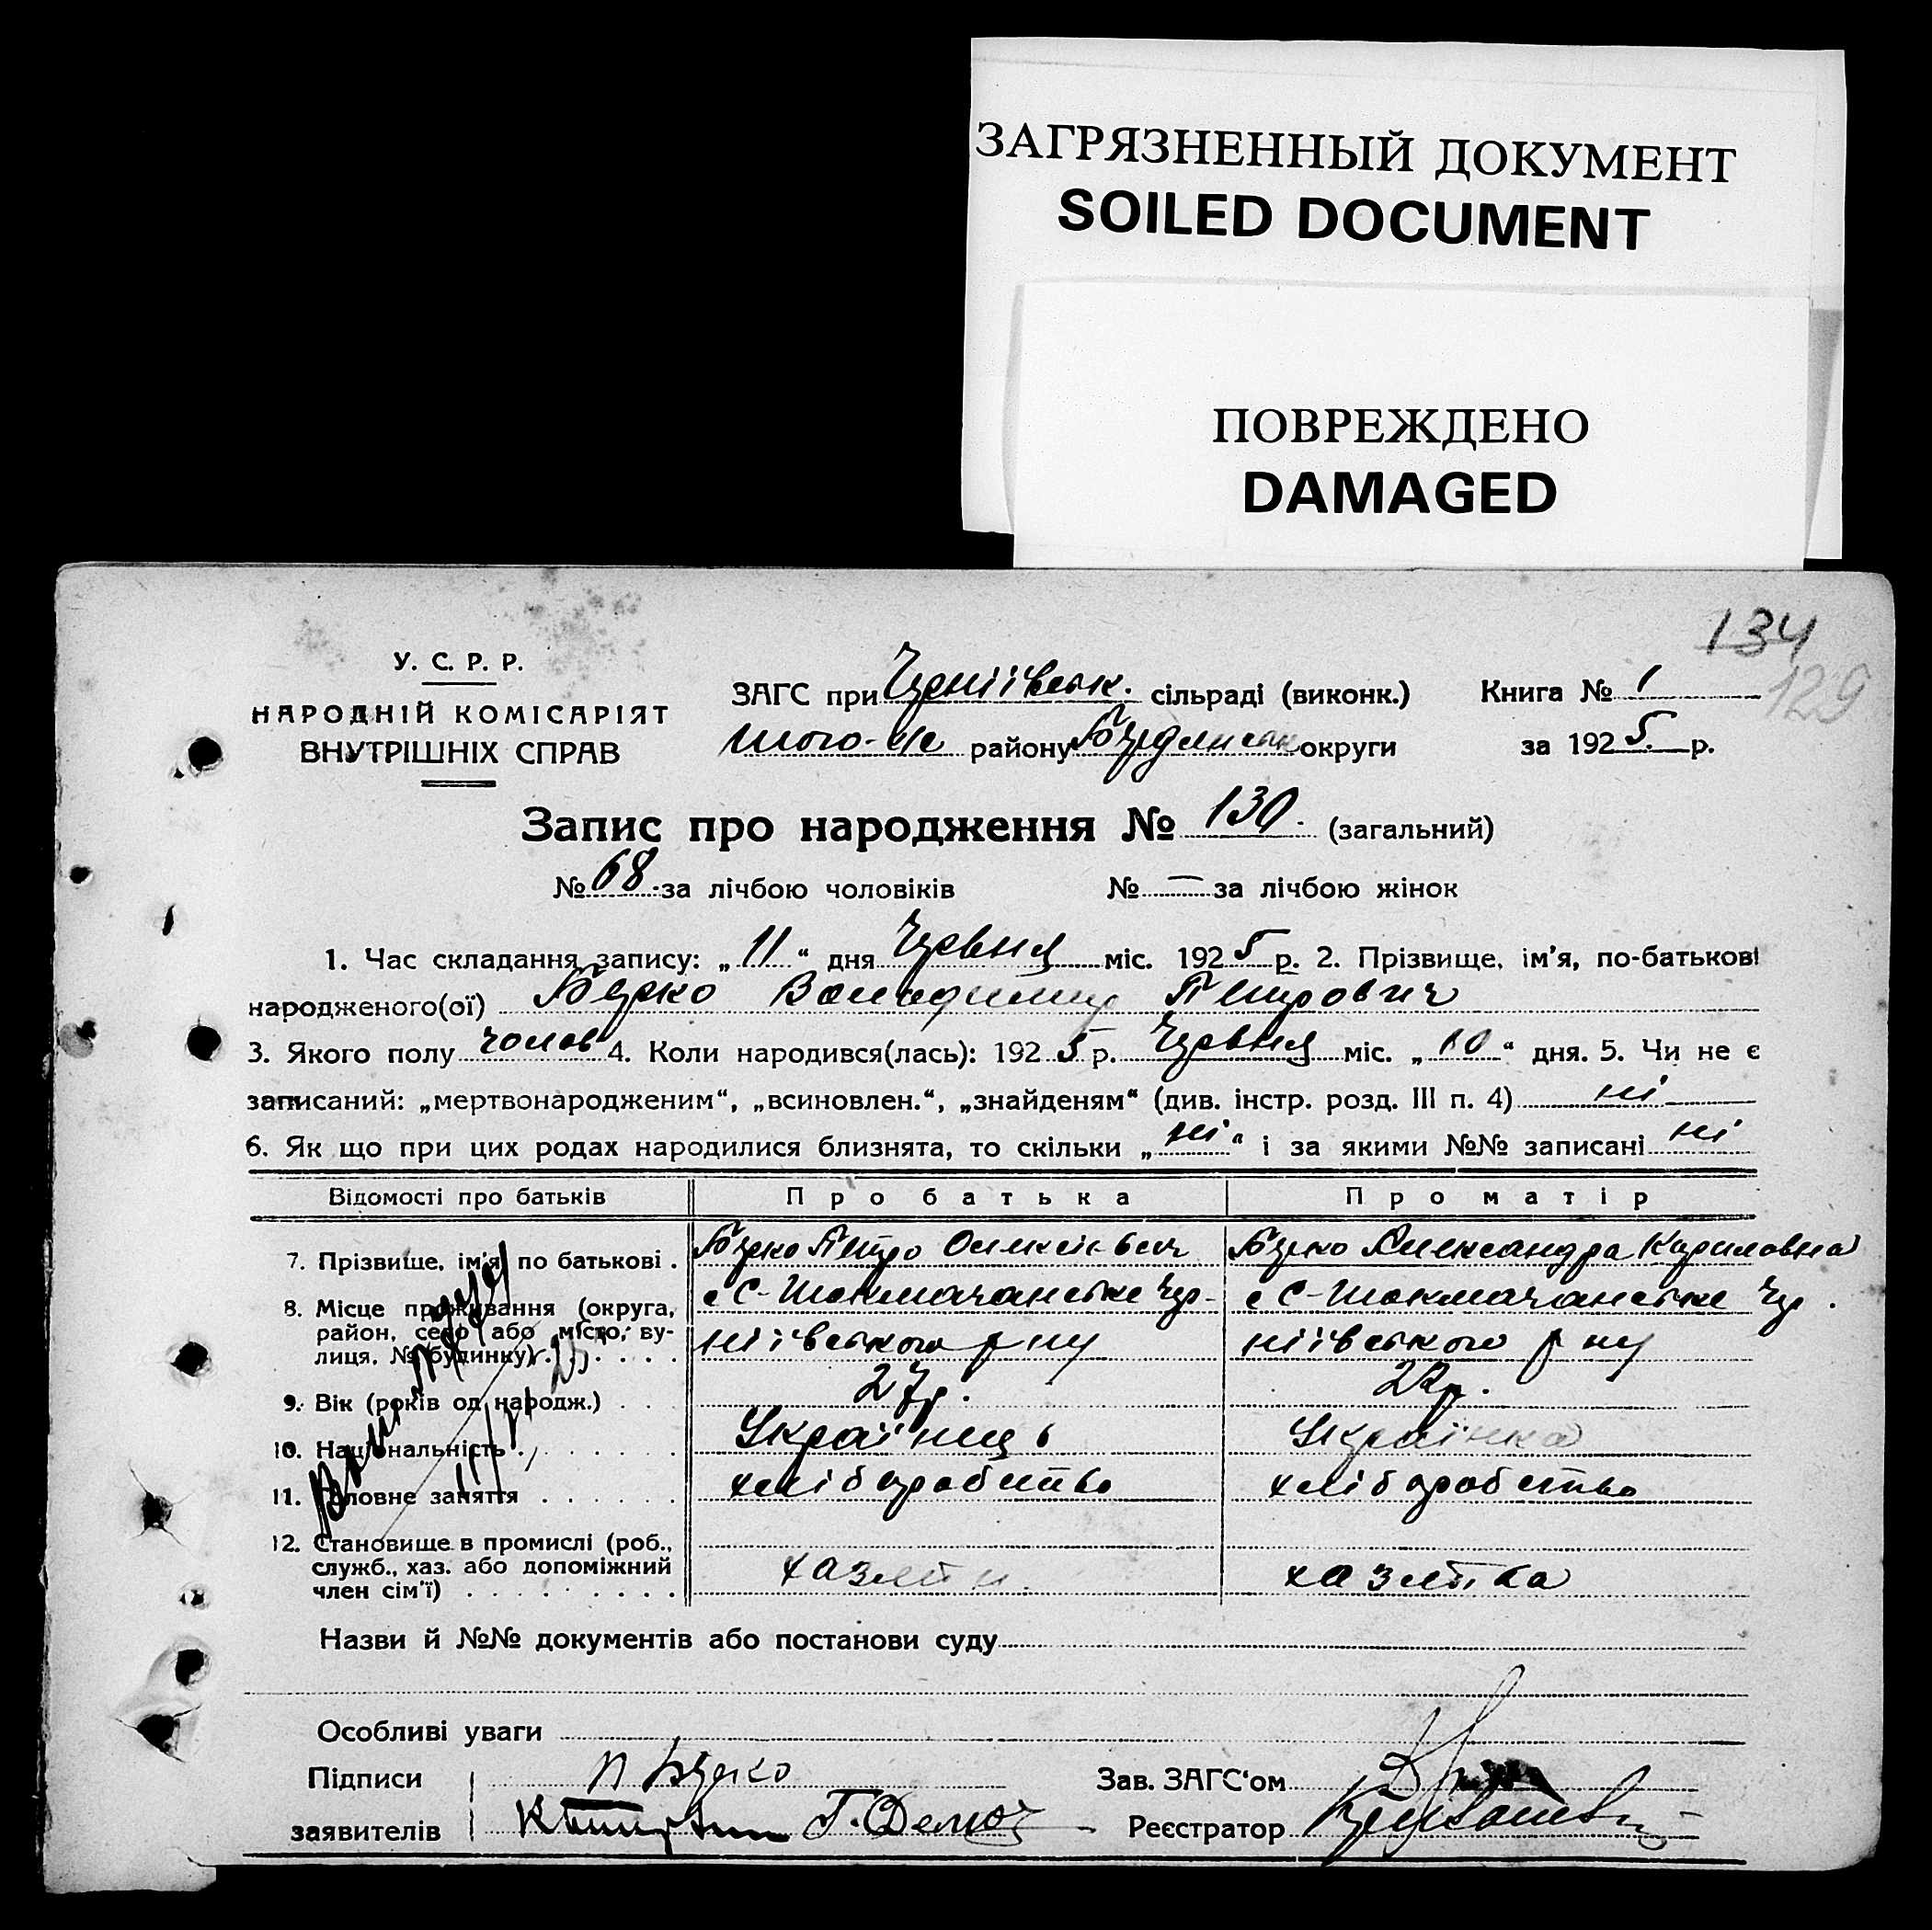 ЗАГРЯЗНЕННЫЙ ДОКУМЕНТ
SOILED DOCUMENT
ПОВРЕЖДЕНО
DAMAGED
134
129
У. С. Р. Р.
НАРОДНІЙ КОМІСАРІЯТ
ВНУТРІШНІХ СПРАВ
ЗАГС при Черніївськ. сільраді (виконк.)
того-же району Бердянськ округи
Книга № 1
за 1925 р.
Запис про народження № 130. (загальний)
№ 68. за лічбою чоловіків № — за лічбою жінок
1. Час складання запису: „11" дня Червня міс. 1925 р. 2. Прізвище, ім'я, по-батькові
народженого(ої) Берко Володимир Петрович
3. Якого полу чолов 4. Коли народився(лась): 1925 р. Червня міс. „10" дня. 5. Чи не є
записаний: „мертвонародженим", „всиновлен.", „знайденям" (див. інстр. розд. III п. 4) ні
6. Як що при цих родах народилися близнята, то скільки „ні" і за якими №№ записані ні
Відомості про батьків Про батька Про матір
7. Прізвище, ім'я, по батькові . Берко Петро Олексієвич Берко Александра Кириловна
8. Місце проживання (округа, с С-Токмачанське Чер- с С-Токмачанське Чер.
район, село або місто, ву-
лиця, № будинку) . . . . . ніївського р ну ніївського р ну
9. Вік (років од народж.) . . 27р. 22р.
10. Національність . . . . . . Українець Українка
11. Головне заняття . . . . . . хліборобство хліборобство
12. Становище в промислі (роб.,
служб., хаз. або допоміжний
член сім'ї) . . . . . . . . . хазяїн хазяїка
Назви й №№ документів або постанови суду
Особливі уваги
Підписи П Берко Зав. ЗАГС'ом
заявителів Реєстратор